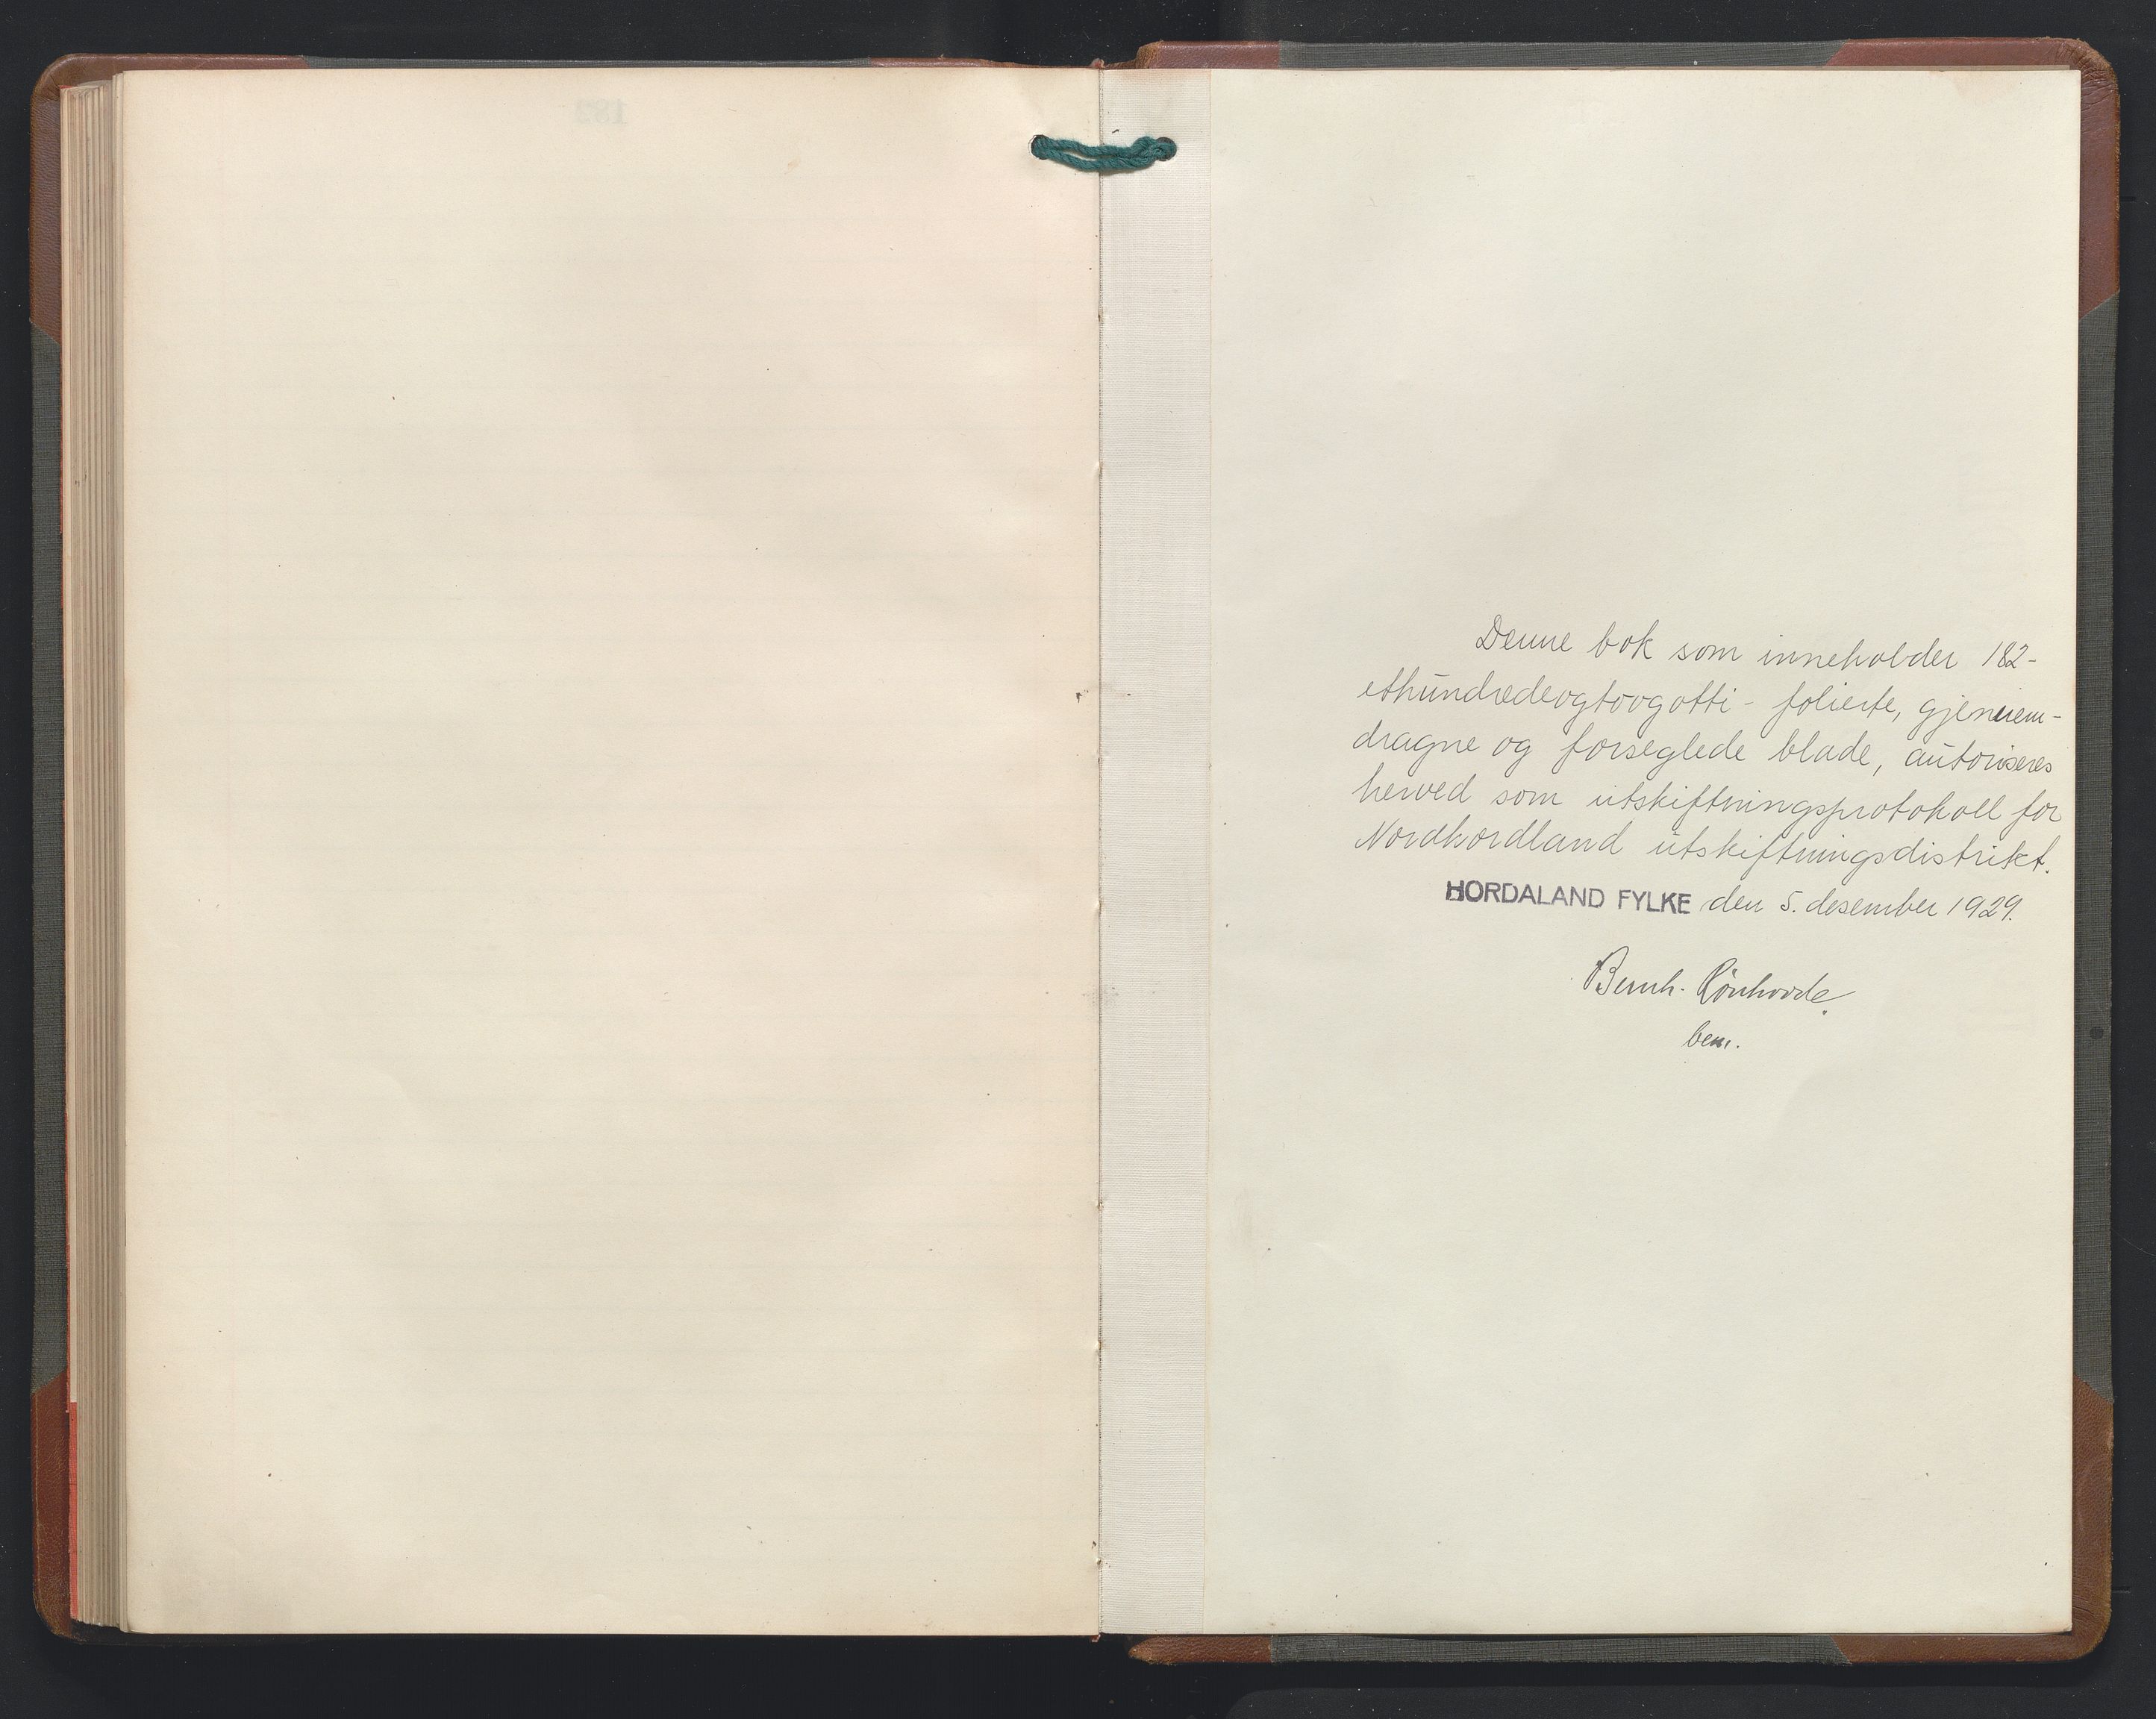 Denne bok som inneholder 182-
ethundredeogtoogotti- folierte, gjennem-
dragne og forseglede blade, autoriseres
herved som utskiftningsprotokoll for
Nordhordland utskiftningsdistrikt.
HORDALAND FYLKE den 5. desember 1929.
Bernh. Rönhovde.
bem.